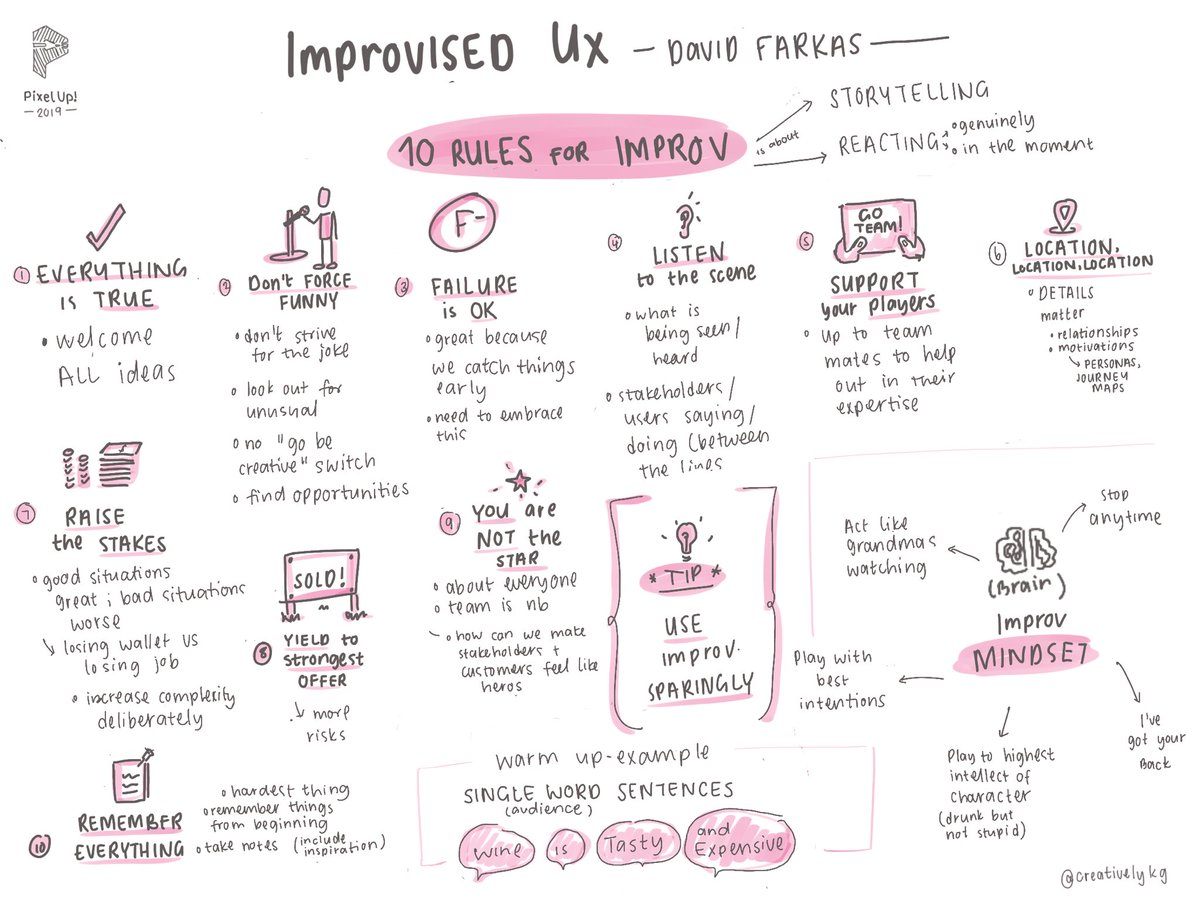 PixelUp!
— 2019 —
ImprovISED UX — DAVID FARKAS
10 RULES FOR IMPROV
is about
STORYTELLING
REACTING
genuinely
in the moment
1 EVERYTHING
is TRUE
• welcome
ALL ideas
2 Don't FORCE
FUNNY
don't strive
for the joke
look out for
unusual
no "go be
creative" switch
find opportunities
F-
3 FAILURE
is OK
great because
we catch things
early
need to embrace
this
4 LISTEN
to the scene
what is
being seen/
heard
stakeholders/
users saying/
doing (between
the lines
GO
TEAM!
5 SUPPORT
your players
up to team
mates to help
out in their
expertise
6 LOCATION,
LOCATION, LOCATION
DETAILS
matter
relationships
motivations
PERSONAS,
JOURNEY
MAPS
7 RAISE
the STAKES
good situations
great; bad situations
worse
losing wallet us
losing job
increase complexity
deliberately
SOLD!
8 YIELD to
strongest
OFFER
more
risks
9 YOU are
NOT the
STAR
about everyone
team is nb
how can we make
stakeholders +
customers feel like
heros
* TIP *
USE
improv.
SPARINGLY
10 REMEMBER
EVERYTHING
hardest thing
remember things
from beginning
take notes (include
inspiration)
warm up-example
SINGLE WORD SENTENCES
(audience)
wine
is
Tasty
and
Expensive
(Brain)
Improv
MINDSET
Stop
anytime
Act like
grandmas
watching
Play with
best
intentions
Play to highest
intellect of
character
(drunk but
not stupid)
I've
got your
Back
@creativelykg